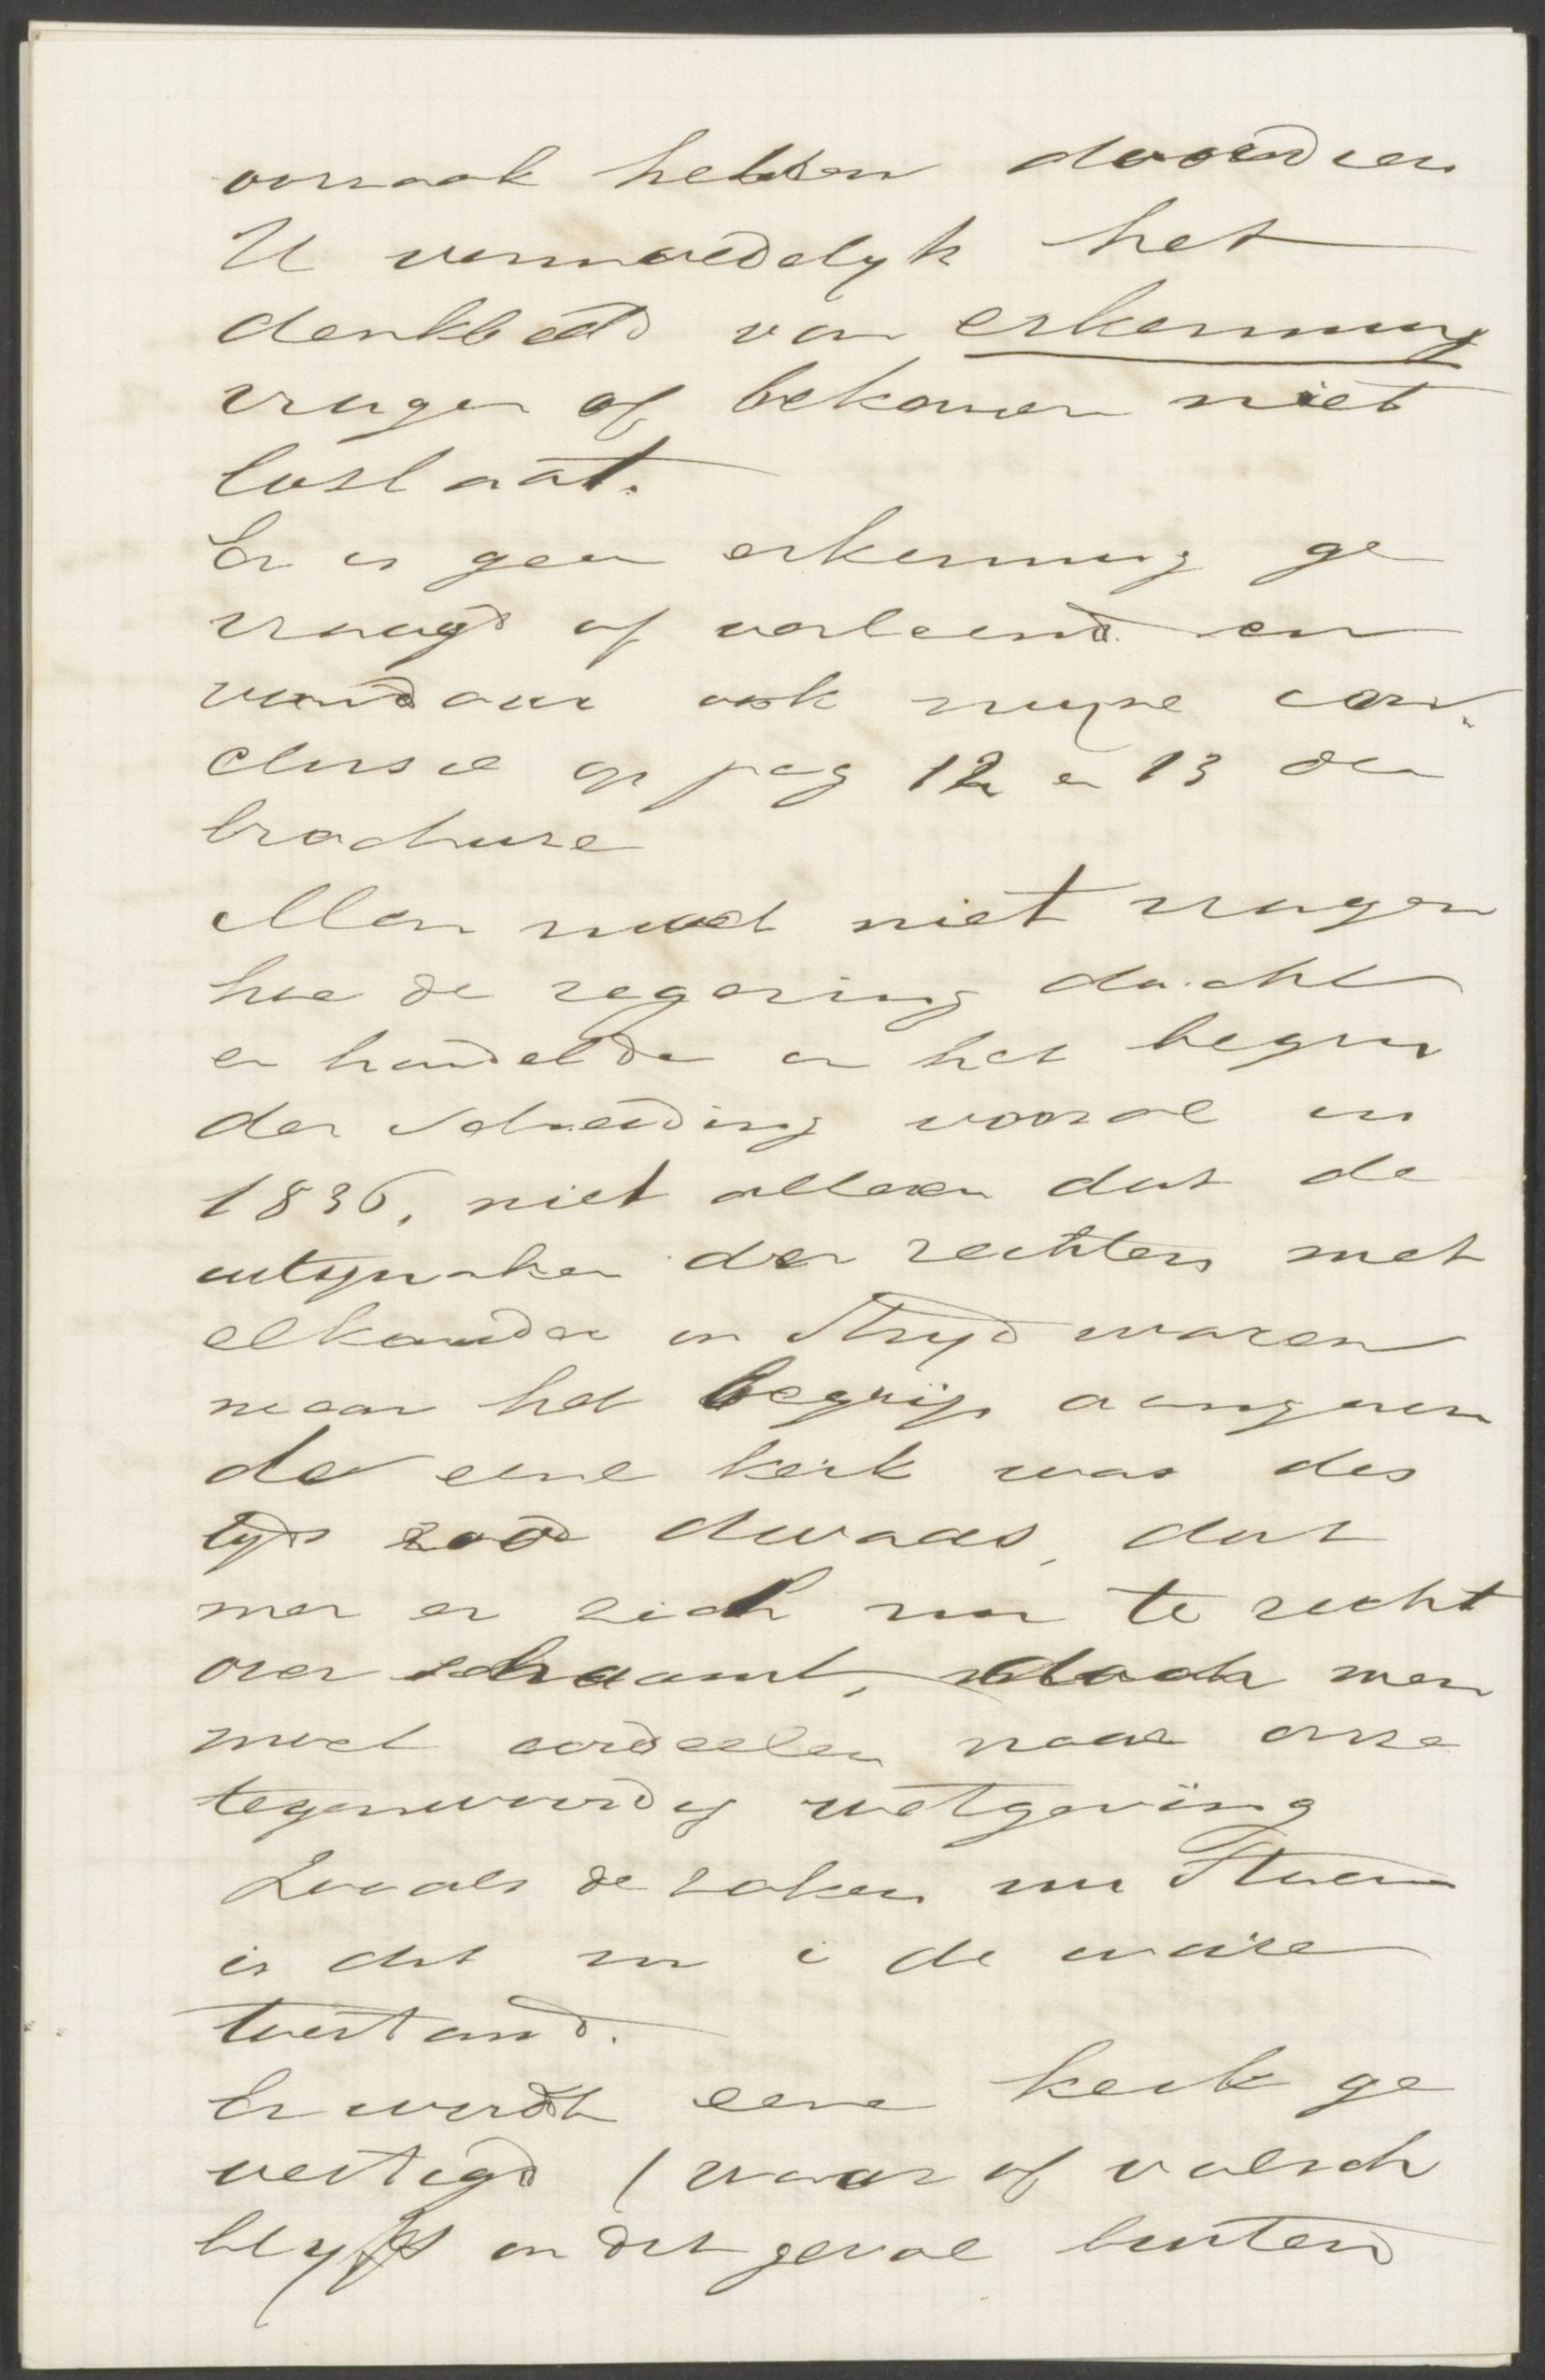 oorzaak hebben doordien
U vermoedelyk het
denkbeeld van erkenning
vragen of bekomen niet
loslaat.
Er is geen erkenning ge
vraagd of verleend en
vandaar ook myne con-
clusie op pag 12 en 13 der
brochure
Men moet niet vragen
hoe de regering dacht
en handelde in het begin
der scheiding vooral in
1836, niet alleen dat de
uitspraken der rechters met
elkander in stryd waren
maar het begrip aangaan
de eene kerk was des
tyds zoo dwaas, dat
men er zich nu te recht
over schaamt, doch men
moet oordeelen naar onze
tegenwoordig wetgeving
Zooals de zaken nu staan
is dit nu i de ware
toestand.
Er wordt eene kerk ge
vestigd (waar of valsch
blyft in dit geval buiten